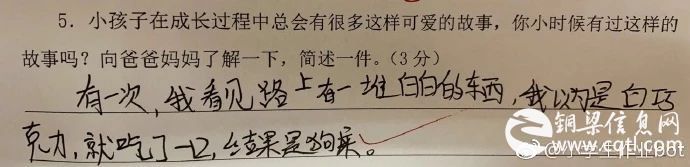 5. 小孩子在成长过程中总会有很多这样可爱的故事，你小时候有过这样的
故事吗？向爸爸妈妈了解一下，简述一件。（3 分）
有一次，我看见路上有一堆白白的东西，我以为是白巧
克力，就吃了一口，结果是狗屎。
铜梁信息网
www.cqtl.com